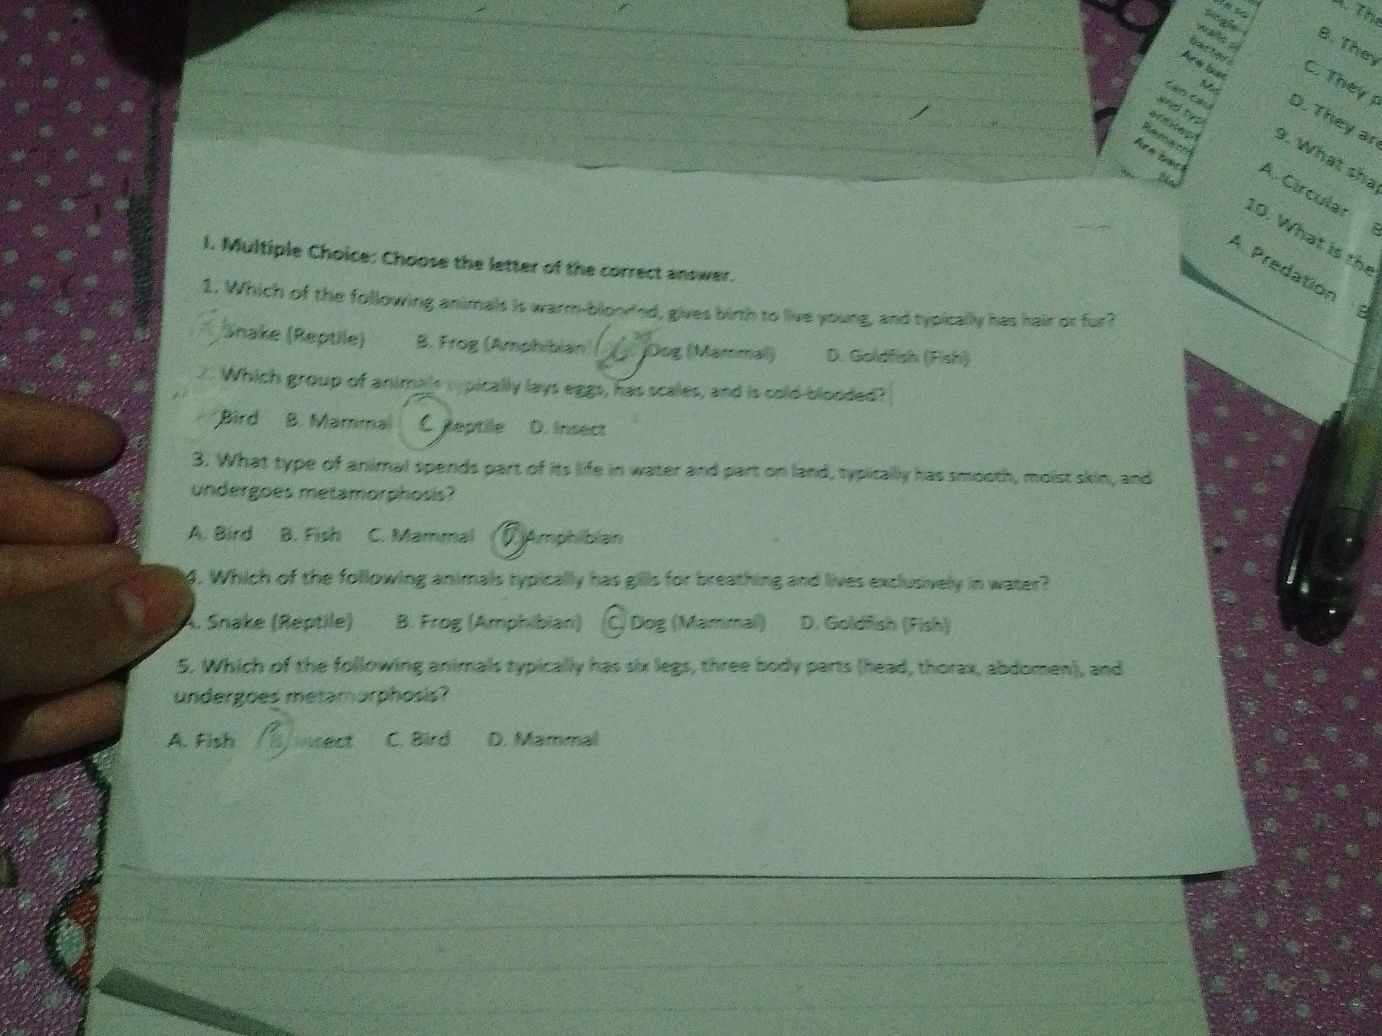 I. Multiple Choice: Choose the letter of the correct answer.
1. Which of the following animals is warm-blooded, gives birth to live young, and typically has hair or fur?
Snake (Reptile) B. Frog (Amphibian) Dog (Mammal) D. Goldfish (Fish)
2. Which group of animals typically lays eggs, has scales, and is cold-blooded?
Bird B. Mammal C Reptile D. Insect
3. What type of animal spends part of its life in water and part on land, typically has smooth, moist skin, and
undergoes metamorphosis?
A. Bird B. Fish C. Mammal D Amphibian
4. Which of the following animals typically has gills for breathing and lives exclusively in water?
. Snake (Reptile) B. Frog (Amphibian) C Dog (Mammal) D. Goldfish (Fish)
5. Which of the following animals typically has six legs, three body parts (head, thorax, abdomen), and
undergoes metamorphosis?
A. Fish B Insect C. Bird D. Mammal
A. The
B. They
C. They p
D. They are
9. What shap
A. Circular B
10. What is the
A. Predation B
single
Are bac
can cau
and typ
Are bac